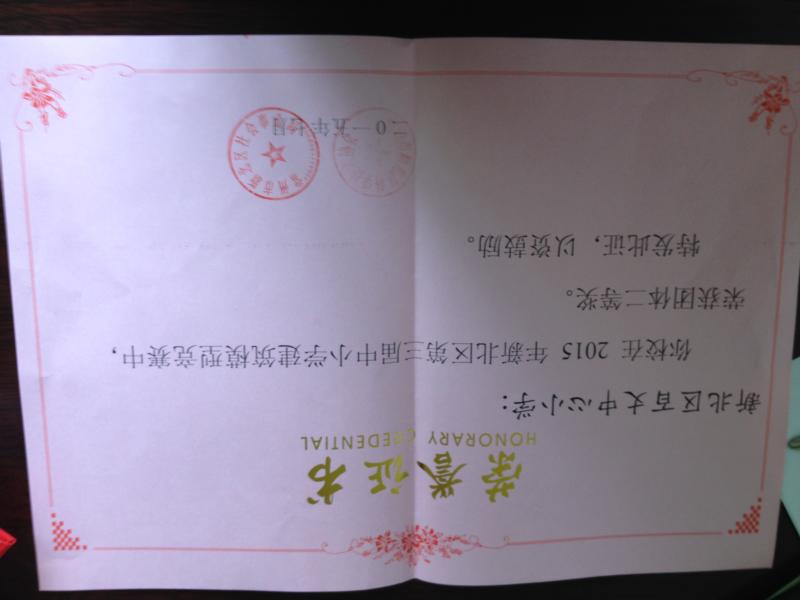 荣誉证书
HONORARY CREDENTIAL
新北区百丈中心小学：
你校在 2015 年新北区第三届中小学建筑模型竞赛中，
荣获团体二等奖。
特发此证，以资鼓励。
二0一五年七月